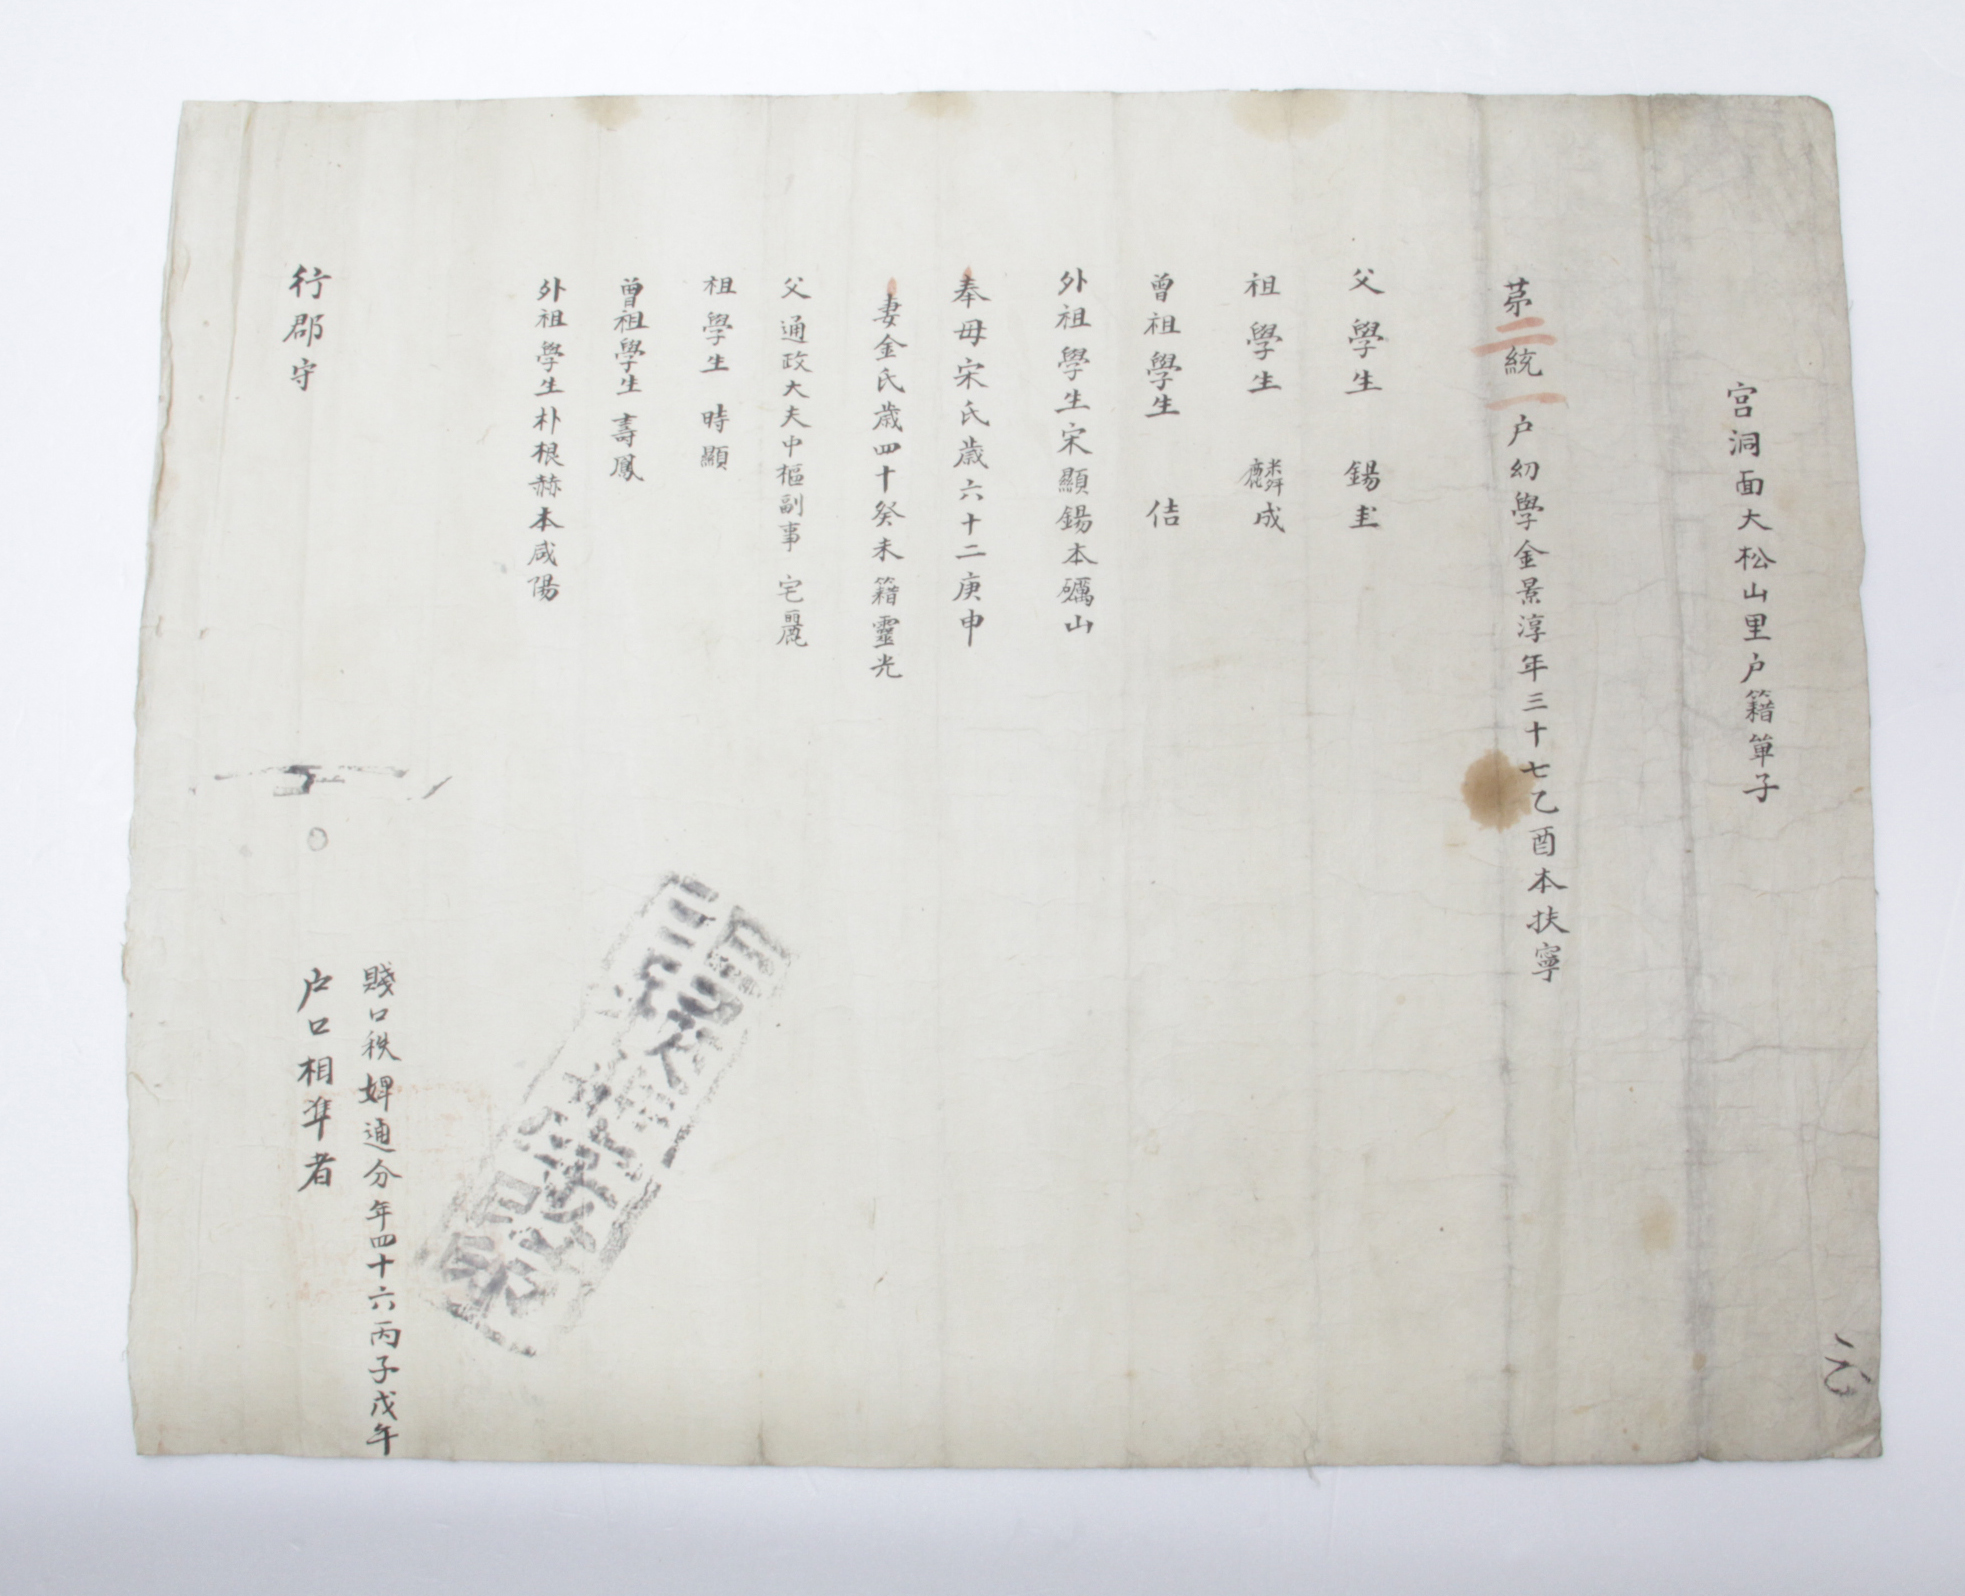 宮洞面大松山里户籍单子
苐二統一户幼學金景淳年三十七乙酉本扶寧
父學生 錫圭
祖學生 麟成
曾祖學生 佶
外祖學生宋顯錫本礪山
奉母宋氏歲六十二庚申
妻金氏歲四十癸未籍靈光
父通政大夫中樞副事 宅麗
祖學生 時顯
曾祖學生 壽鳳
外祖學生朴根赫本咸陽
賤口秩婢通分年四十六丙子戊午
行郡守
户口相準者